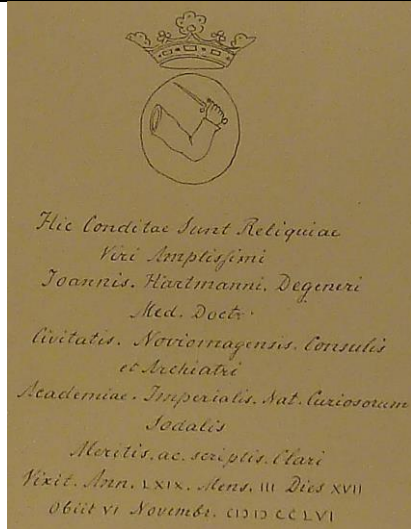 Hic Conditae Sunt Reliquiae
Viri Amplissimi
Joannis. Hartmanni. Degeneri
Med. Doctr.
Civitatis. Noviomagensis. Consulis
et Archiatri
Academiae. Imperialis. Nat. Curiosorum
Sodalis
Meritis. ac. scriptis. Clari
Vixit. Ann. LXIX. Mens. III Dies XVII
Obiit VI Novembr. CIↃIↃCCLVI